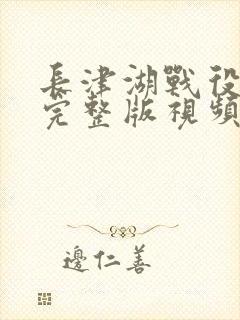 長津湖戰役
完整版視頻
邊仁善